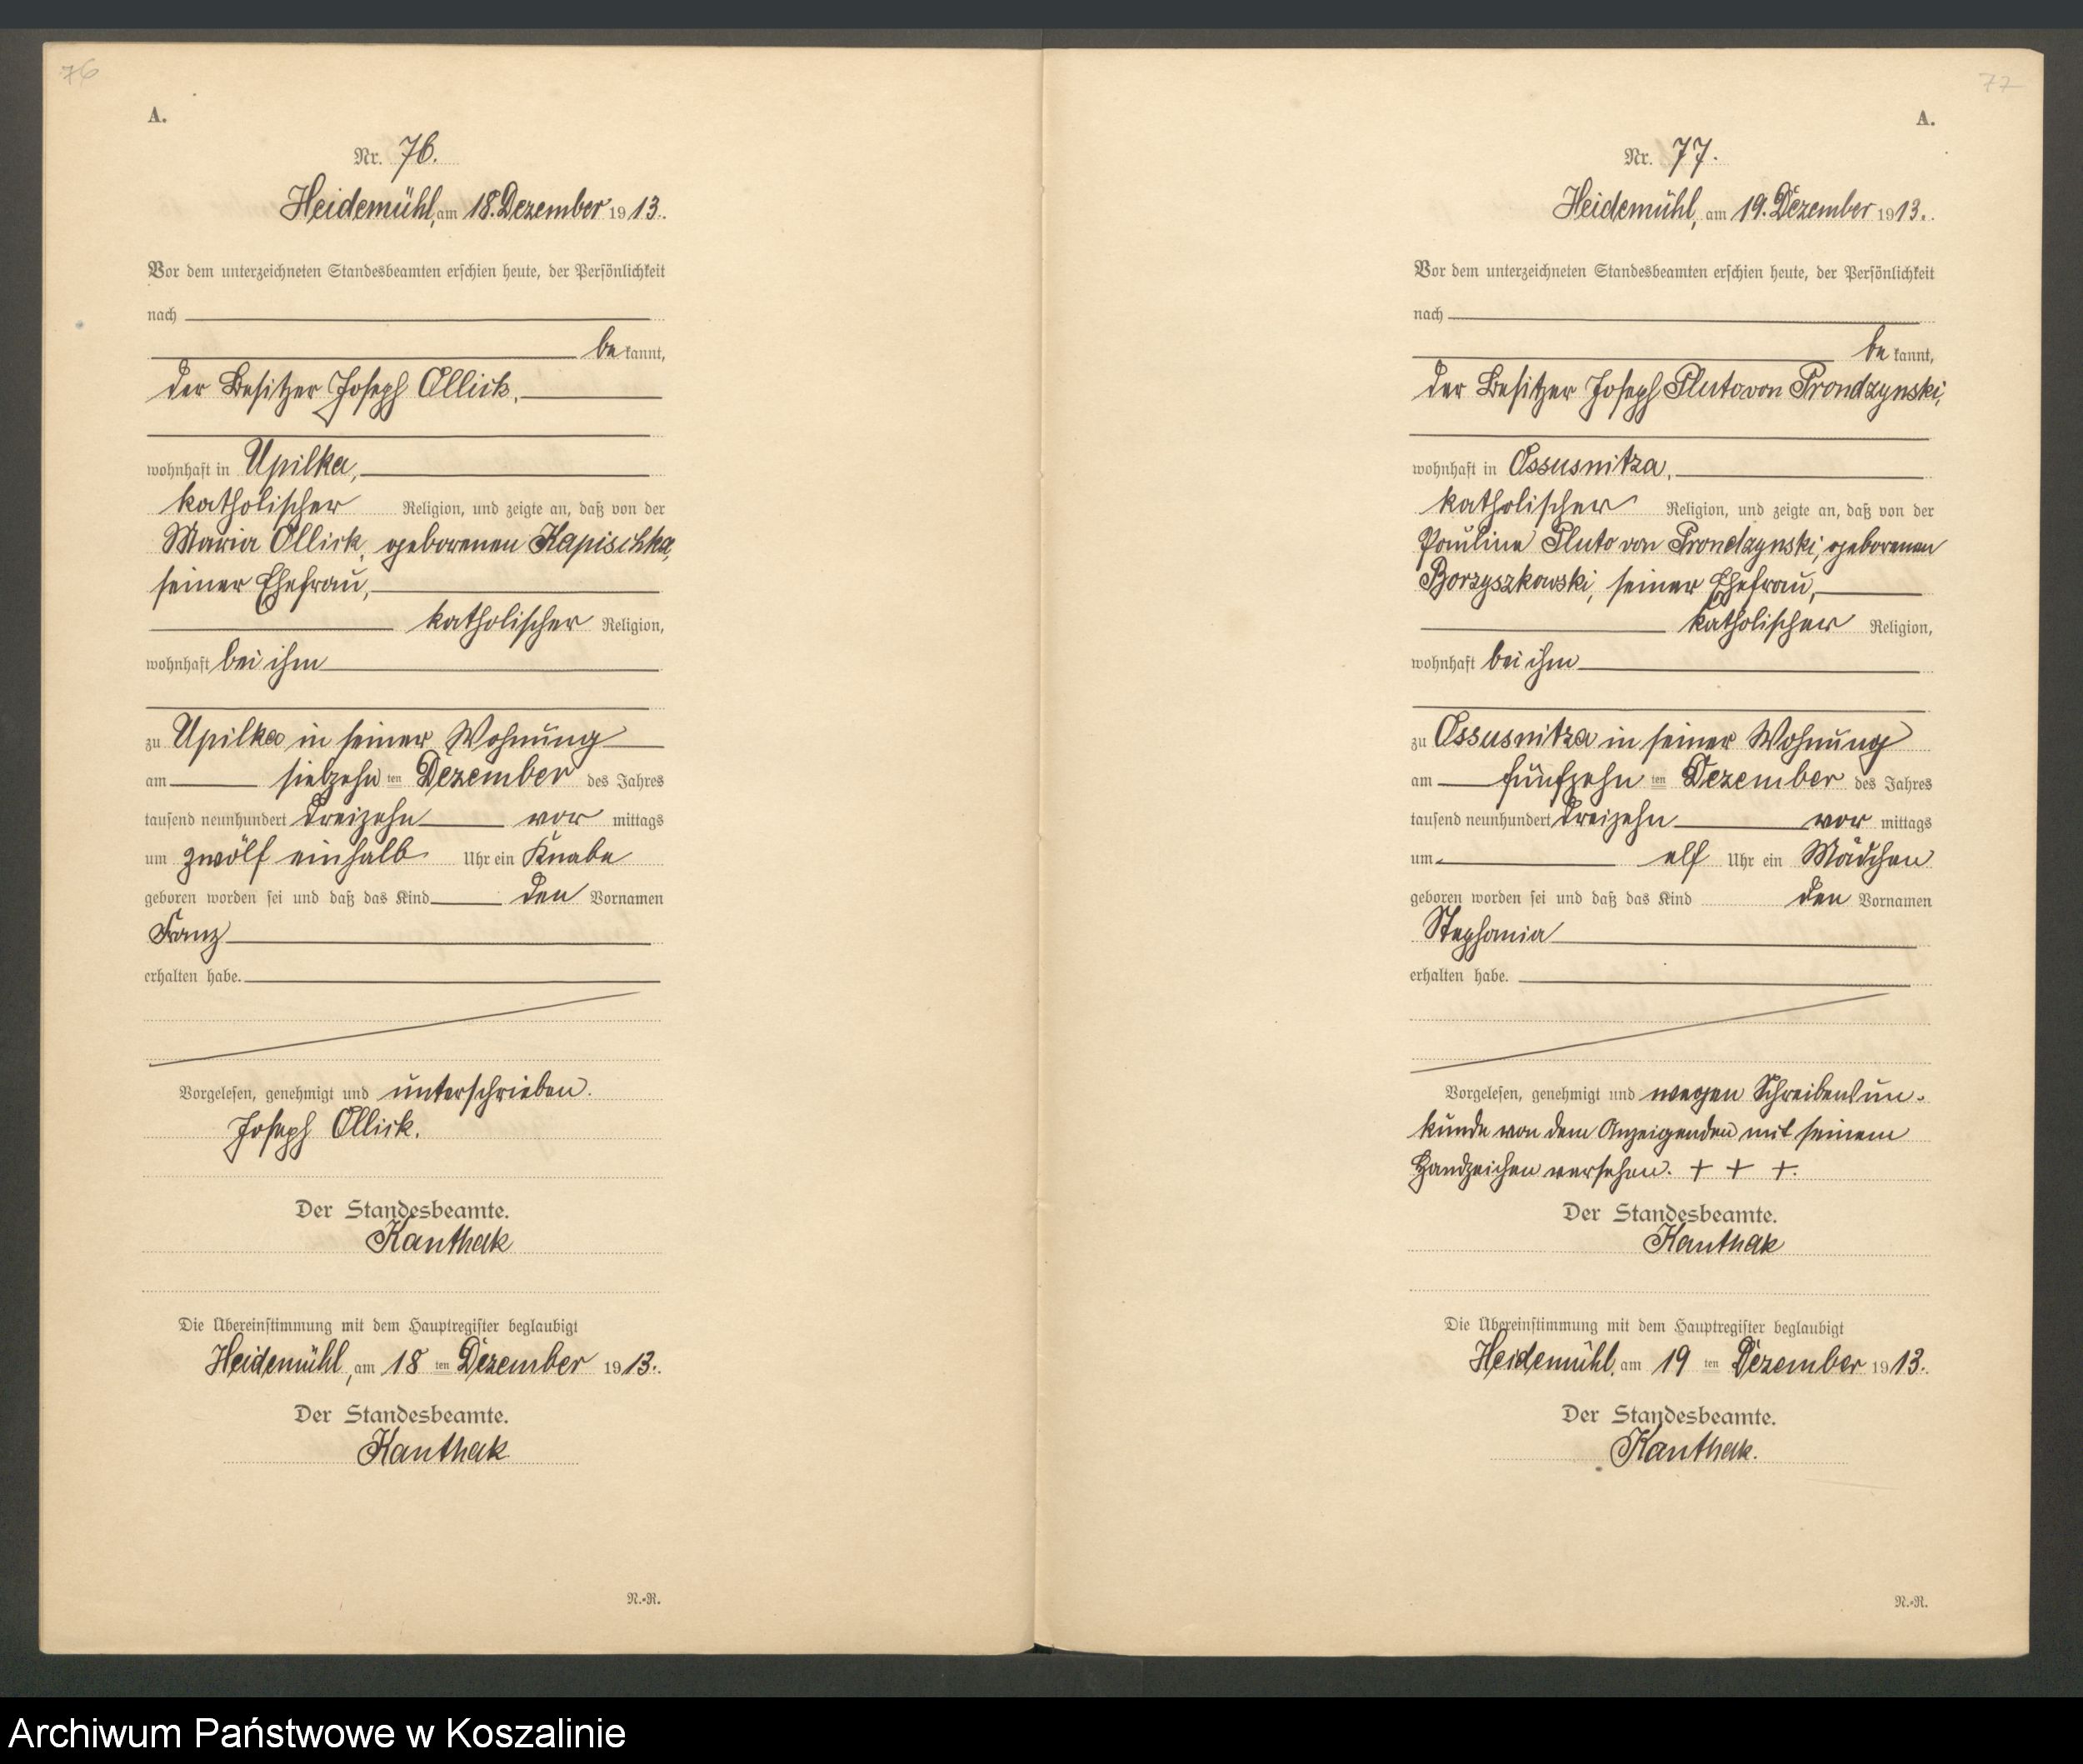 76
A.
Nr. 76.
Heidemühl, am 18. Dezember 1913.
Vor dem unterzeichneten Standesbeamten erschien heute, der Persönlichkeit
nach
be kannt,
der Besitzer Joseph Ollick,
wohnhaft in Upilka,
katholischer Religion, und zeigte an, daß von der
Maria Ollick, geborenen Kapischka,
seiner Ehefrau,
katholischer Religion,
wohnhaft bei ihm
zu Upilka in seiner Wohnung
am siebzehn ten Dezember des Jahres
tausend neunhundert dreizehn vor mittags
um zwölf einhalb Uhr ein Knabe
geboren worden sei und daß das Kind den Vornamen
Franz
erhalten habe.
Vorgelesen, genehmigt und unterschrieben.
Joseph Ollick.
Der Standesbeamte.
Kanthak
Die Übereinstimmung mit dem Hauptregister beglaubigt
Heidemühl, am 18 ten Dezember 1913.
Der Standesbeamte.
Kanthak
N.-R.
77
A.
Nr. 77.
Heidemühl, am 19. Dezember 1913.
Vor dem unterzeichneten Standesbeamten erschien heute, der Persönlichkeit
nach
be kannt,
der Besitzer Joseph Pluto von Prondzynski,
wohnhaft in Ossusnitza,
katholischer Religion, und zeigte an, daß von der
Pauline Pluto von Prondzynski, geborenen
Borzyszkowski, seiner Ehefrau,
katholischer Religion,
wohnhaft bei ihm
zu Ossusnitza in seiner Wohnung
am fünfzehn ten Dezember des Jahres
tausend neunhundert dreizehn vor mittags
um elf Uhr ein Mädchen
geboren worden sei und daß das Kind den Vornamen
Stephania
erhalten habe.
Vorgelesen, genehmigt und wegen Schreibensun-
kunde von dem Anzeigenden mit seinem
Handzeichen versehen. + + +.
Der Standesbeamte.
Kanthak
Die Übereinstimmung mit dem Hauptregister beglaubigt
Heidemühl, am 19 ten Dezember 1913.
Der Standesbeamte.
Kanthak.
N.-R.
Archiwum Państwowe w Koszalinie